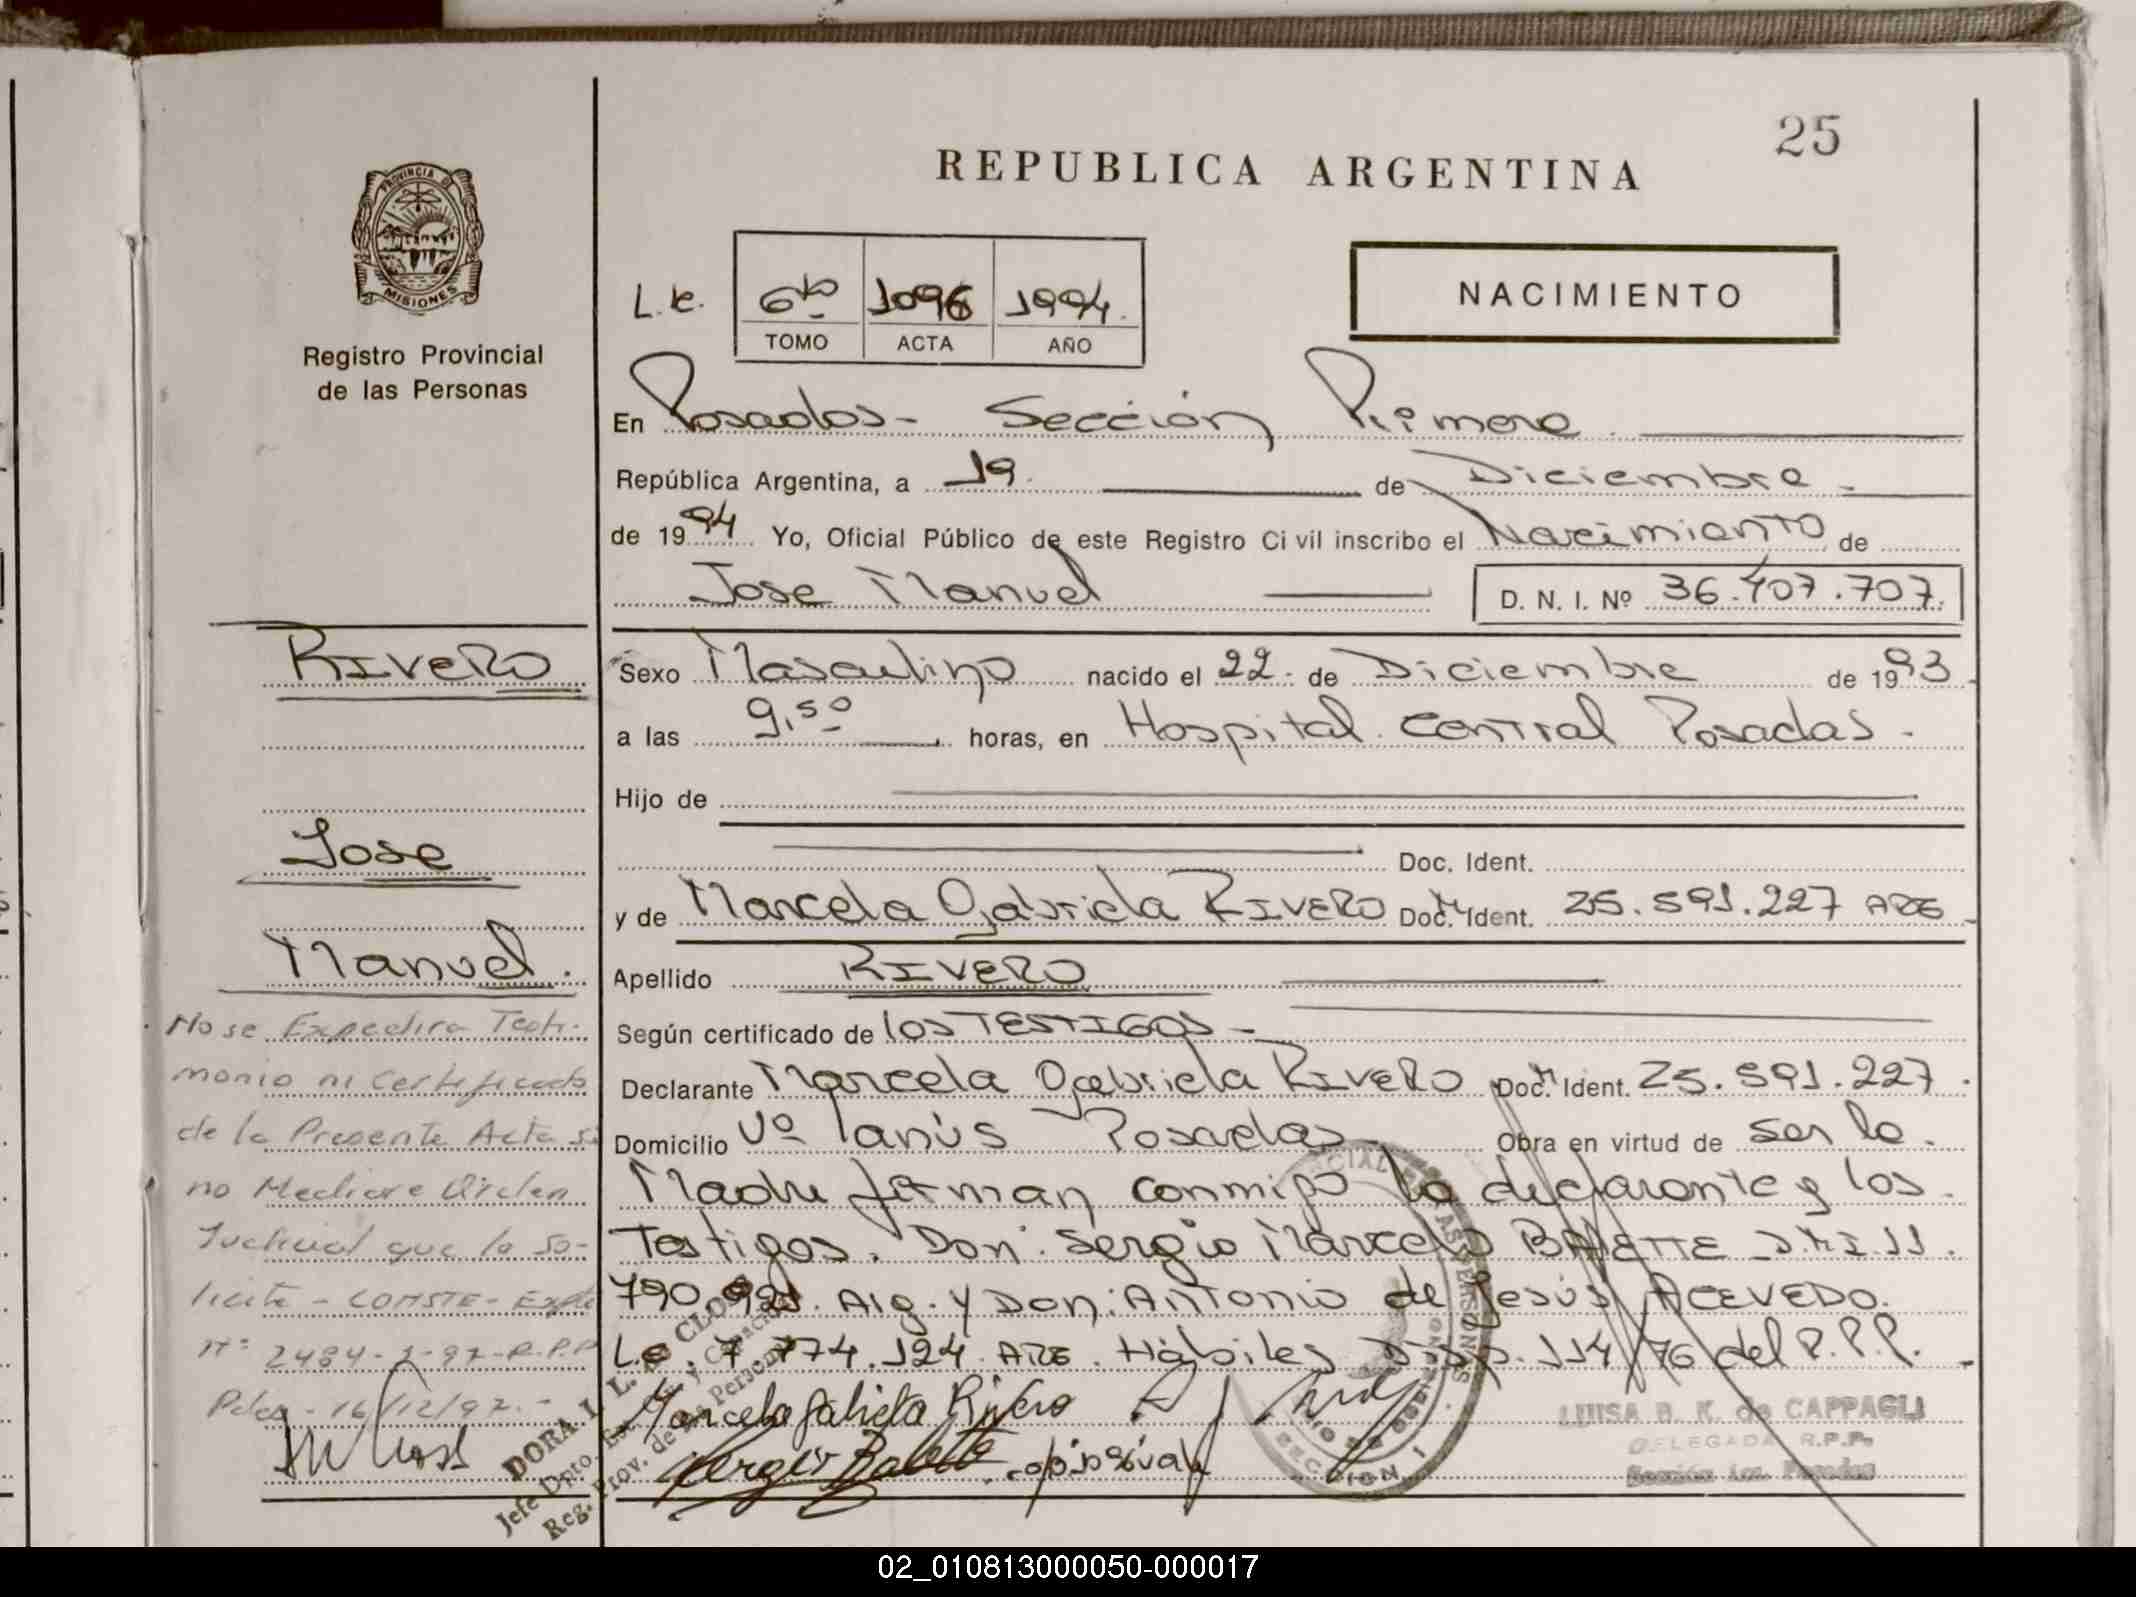 25
REPUBLICA ARGENTINA
PROVINCIA DE
MISIONES
Registro Provincial
de las Personas
L.e. 6to 1096 1994.
TOMO ACTA AÑO
NACIMIENTO
En Posadas - Sección Primera
República Argentina, a 19 de Diciembre
de 1994 Yo, Oficial Público de este Registro Civil inscribo el Nacimiento de
Jose Manuel D. N. I. Nº 36.407.707.
RIVERO
Sexo Masculino nacido el 22 de Diciembre de 1993
a las 9,50 horas, en Hospital Central Posadas.
Hijo de
Jose
Doc. Ident.
y de Marcela Gabriela RIVERO Doc. Ident. 25.591.227 ARG
Manuel.
Apellido RIVERO
Según certificado de los TESTIGOS -
Declarante Marcela Gabriela RIVERO Doc. Ident. 25.591.227.
Domicilio Vº Lanús Posadas. Obra en virtud de ser la
Madre firman conmigo la declarante y los
Testigos. Don. Sergio Marcelo BALETTE D.N.I. 11.
790.921. Arg. y Don. Antonio de Jesús ACEVEDO.
L.e. 7.774.124. ARG. Hábiles Disp. 114/76 del R.P.P.
No se Expedira Testi-
monio ni Certificado
de la Presente Acta si
no Mediare Orden
Judicial que lo so-
licite - CONSTE - Expte
Nº 2484-
Pdas - 16/12/97.-
Marcela Gabriela Rivero
Sergio Balette
DORA I. L.
Jefe Dpto.
Reg. Prov. de las Personas
SECCION I
LUISA B. K. de CAPPAGLI
DELEGADA R.P.P.
Sección 1ra. Posadas
02_010813000050-000017